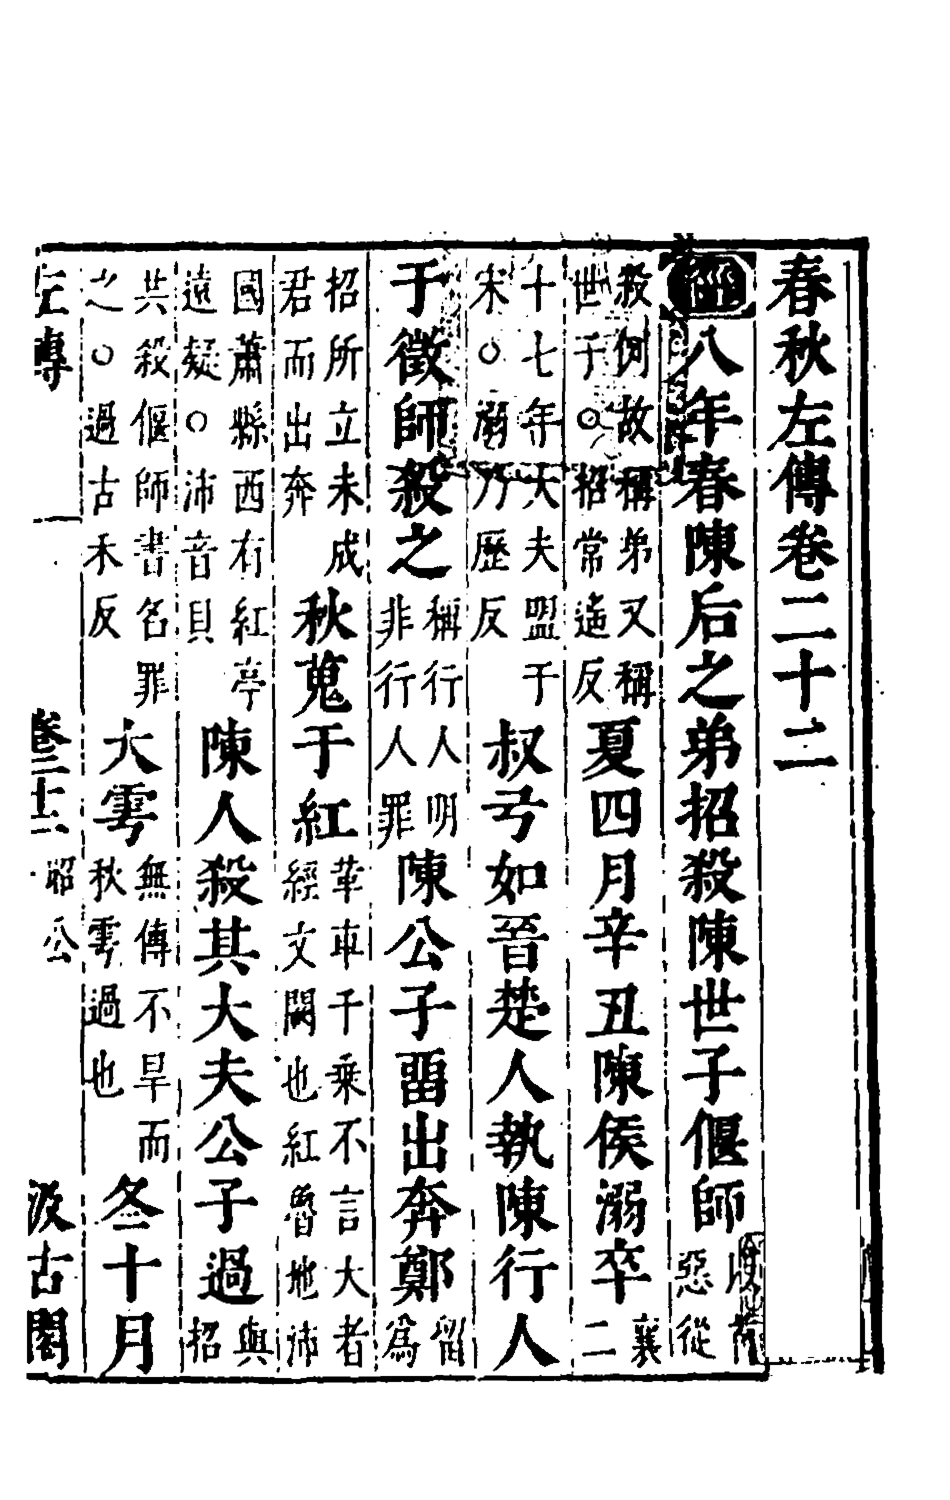 春秋左傳卷二十二
經八年春陳后之弟招殺陳世子偃師惡從
殺例故稱弟又稱世子○招常遙反夏四月辛丑陳侯溺卒襄二
十七年大夫盟于宋○溺乃歷反叔弓如晉楚人執陳行人
于徵師殺之稱行人明非行人罪陳公子畱出奔鄭留為
招所立未成君而出奔秋蒐于紅革車千乗不言大者經文闕也紅魯地沛
國蕭縣西有紅亭遠疑○沛音貝陳人殺其大夫公子過與招
共殺偃師書名罪之○過古禾反大雩無傳不旱而秋雩過也冬十月
左傳 卷二十二 昭公 汲古閣